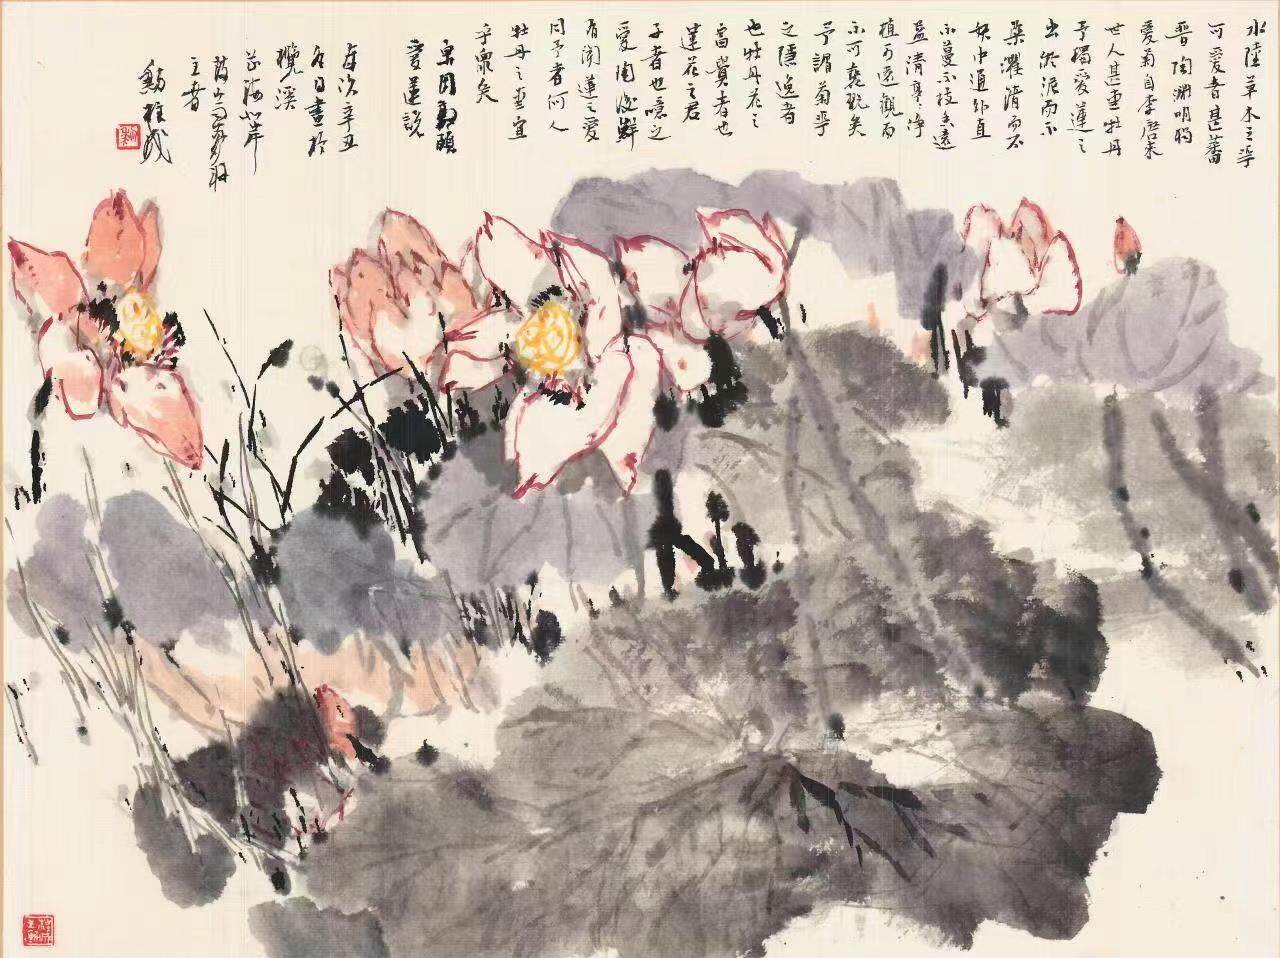 水陸草木之華
可愛者甚蕃
晋陶渊明獨
愛菊自李唐来
世人甚重牡丹
予獨愛蓮之
出於泥而不
染濯清而不
妖中通外直
不蔓不枝香遠
益清亭亭净
植可遠觀而
不可亵玩矣
予謂菊華
之隱逸者
也牡丹花之
富貴者也
蓮花之君
子者也噫之
愛陶後鮮
有闻蓮之愛
同予者何人
牡丹之愛宜
乎眾矣
宋周敦頤
愛蓮說
歲次辛丑
冬日畫於
溪
海北岸
主者